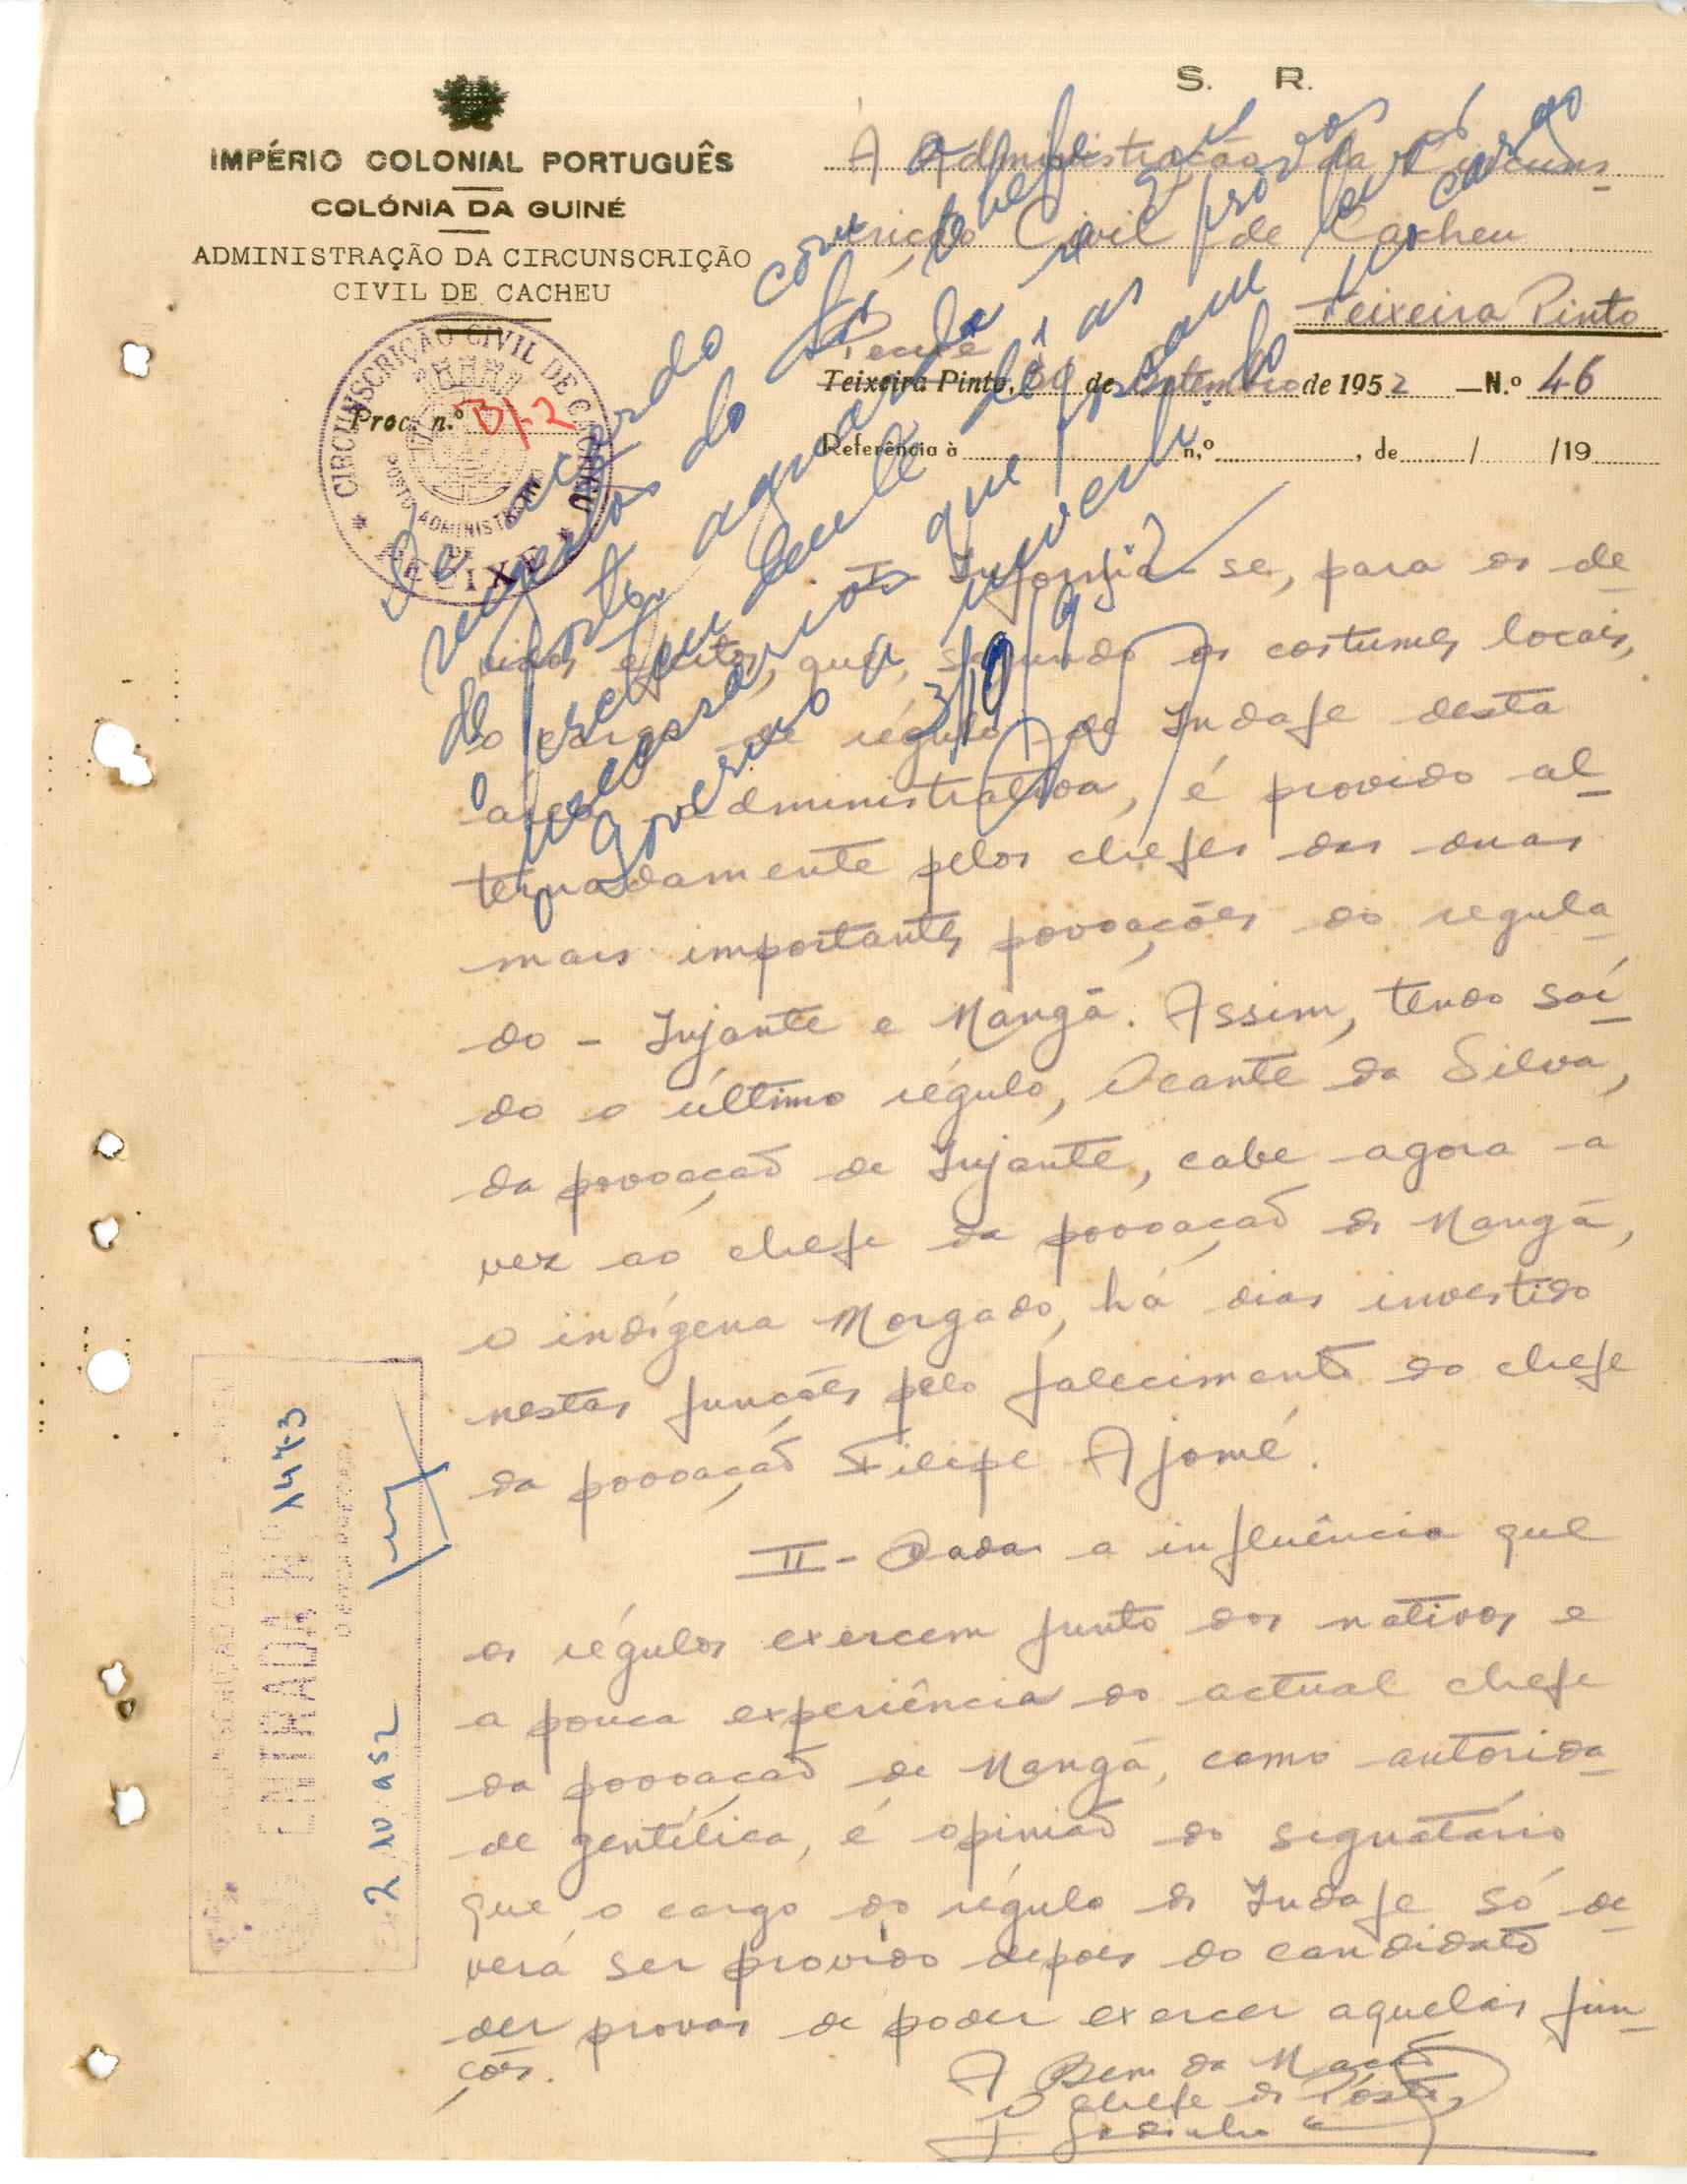 S. R.
IMPÉRIO COLONIAL PORTUGUÊS
COLÓNIA DA GUINÉ
ADMINISTRAÇÃO DA CIRCUNSCRIÇÃO
CIVIL DE CACHEU
À Administração da Circuns
crição Civil de Cacheu
Teixeira Pinto
Pecixe
Teixeira Pinto, 30 de Setembro de 1952 — N.º 46
Proc. n.º B/-2
Referência à n,º , de / /19
CIRCUNSCRIÇÃO CIVIL DE CACHEU
POSTO ADMINISTRATIVO
DE
PECIXE
De acordo com a
sugestão do Sr. chefe
de posto, aguarda-se que
o presumente dê as provas
necessárias que façam levar o
governo a investi-lo no cargo
3/10/952
I - Informa-se, para os de
vidos efeitos, que, segundo os costumes locais,
o cargo de régulo de Indafe desta
área administrativa, é provido al
ternadamente pelos chefes das duas
mais importantes povoações do regula
do - Injante e Mangã. Assim, tendo saí
do o último régulo, Ocante da Silva,
da povoação de Injante, cabe agora a
vez ao chefe da povoação de Mangã,
o indígena Morgado, há dias investido
nestas funções pelo falecimento do chefe
da povoação Filipe Ajomé.
II - Dadas a influência que
os régulos exercem junto dos nativos e
a pouca experiência do actual chefe
da povoação de Mangã, como autorida
de gentílica, é opinião do signatário
que o cargo do régulo de Indafe só de
verá ser provido depois do candidato
der provas de poder exercer aquelas fun
ções.
A Bem da Nação
O Chefe de Posto,
Godinho
ENTRADA N.º 1473
2 10 952